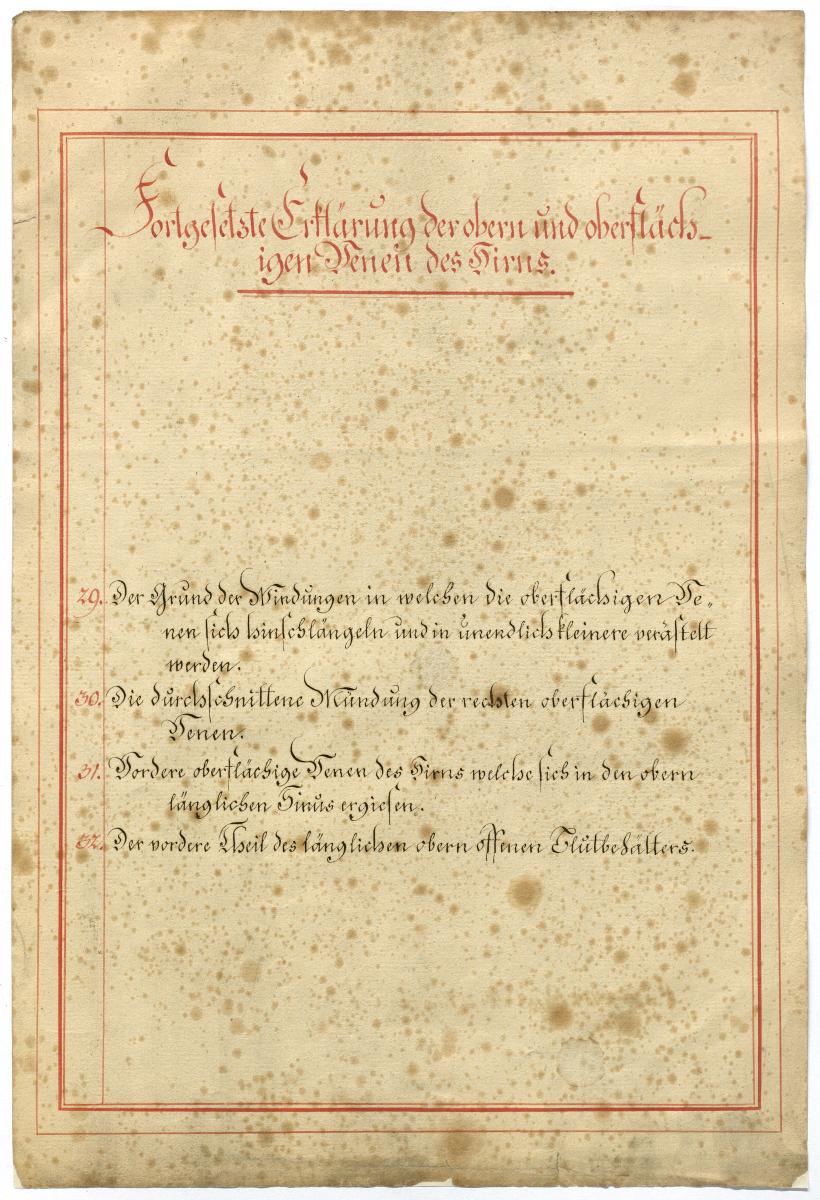 Fortgesetzte Erklärung der obern und oberfläch-
igen Venen des Hirns.
29. Der Grund der Windungen in welchen die oberflächigen Ve„
nen sich hinschlängeln und in unendlich kleinere verästelt
werden.
30. Die durchschnittene Mündung der rechten oberflächigen
Venen.
31. Vordere oberflächige Venen des Hirns welche sich in den obern
länglichen Sinus ergiesen.
32. Der vordere Theil des länglichen obern offenen Blutbehälters.